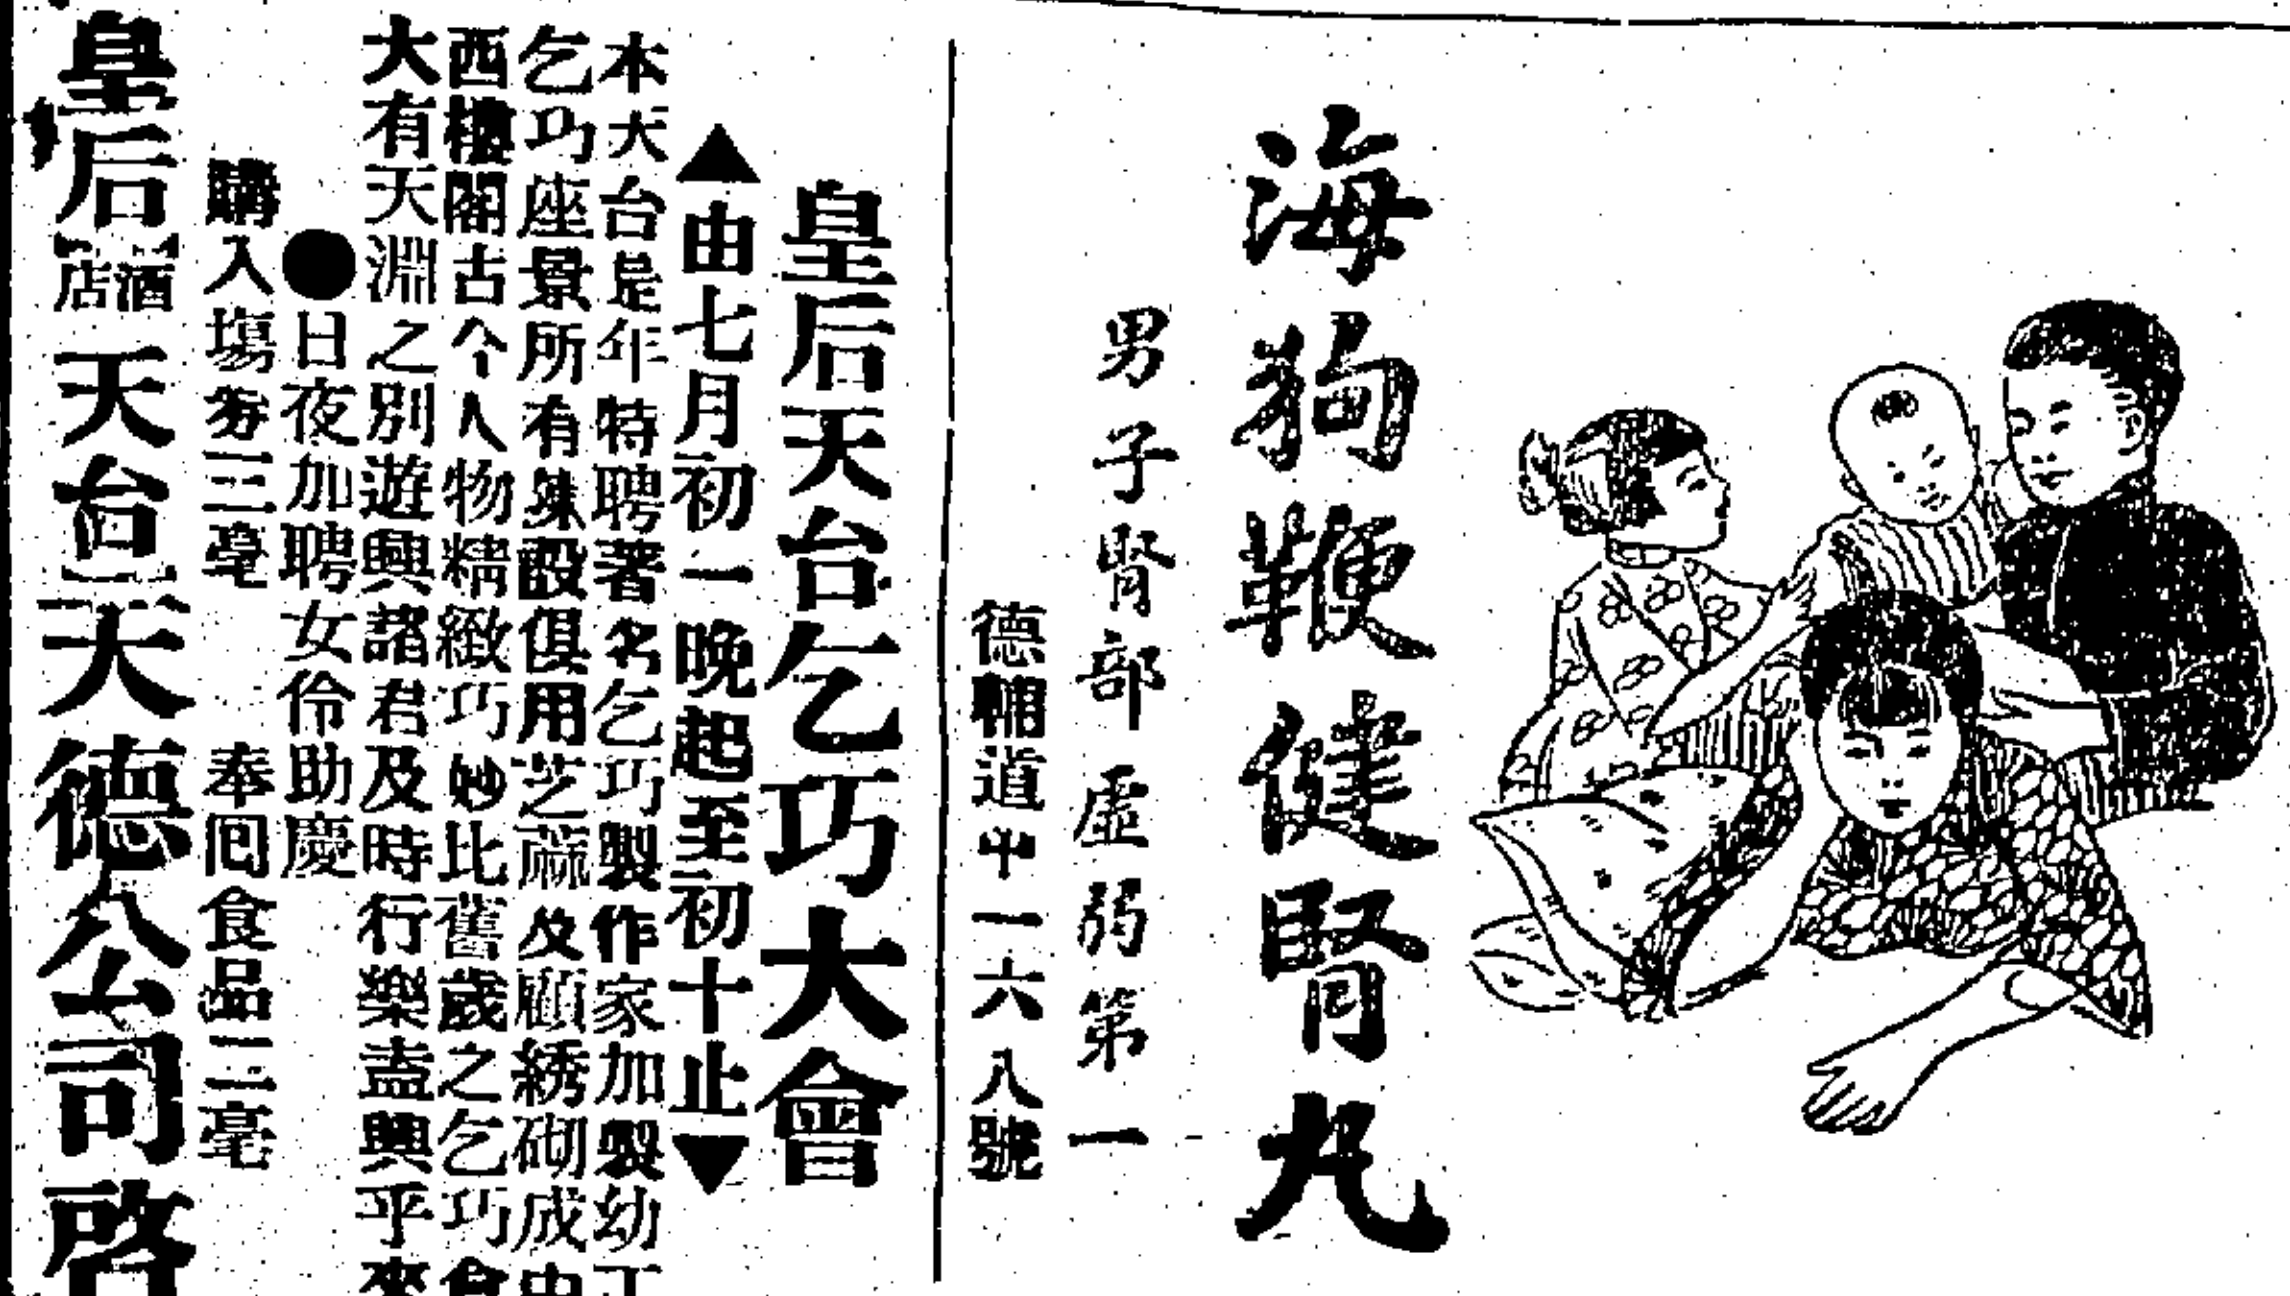 海狗鞭健腎丸
男子腎部虛弱第一
德輔道中一六八號
皇后天台乞巧大會
▲由七月初一晚起至初十止▼
本天台是年特聘著名乞巧製作家加製幼工
乞巧座景所有陳設俱用芝蔴及顧綉砌成中
西樓閣古今人物精緻巧妙比舊歲之乞巧會
大有天淵之別遊興諸君及時行樂盍興乎來
●日夜加聘女伶助慶
購入塲券三毫 奉囘食品二毫
皇后酒店天台天德公司啓